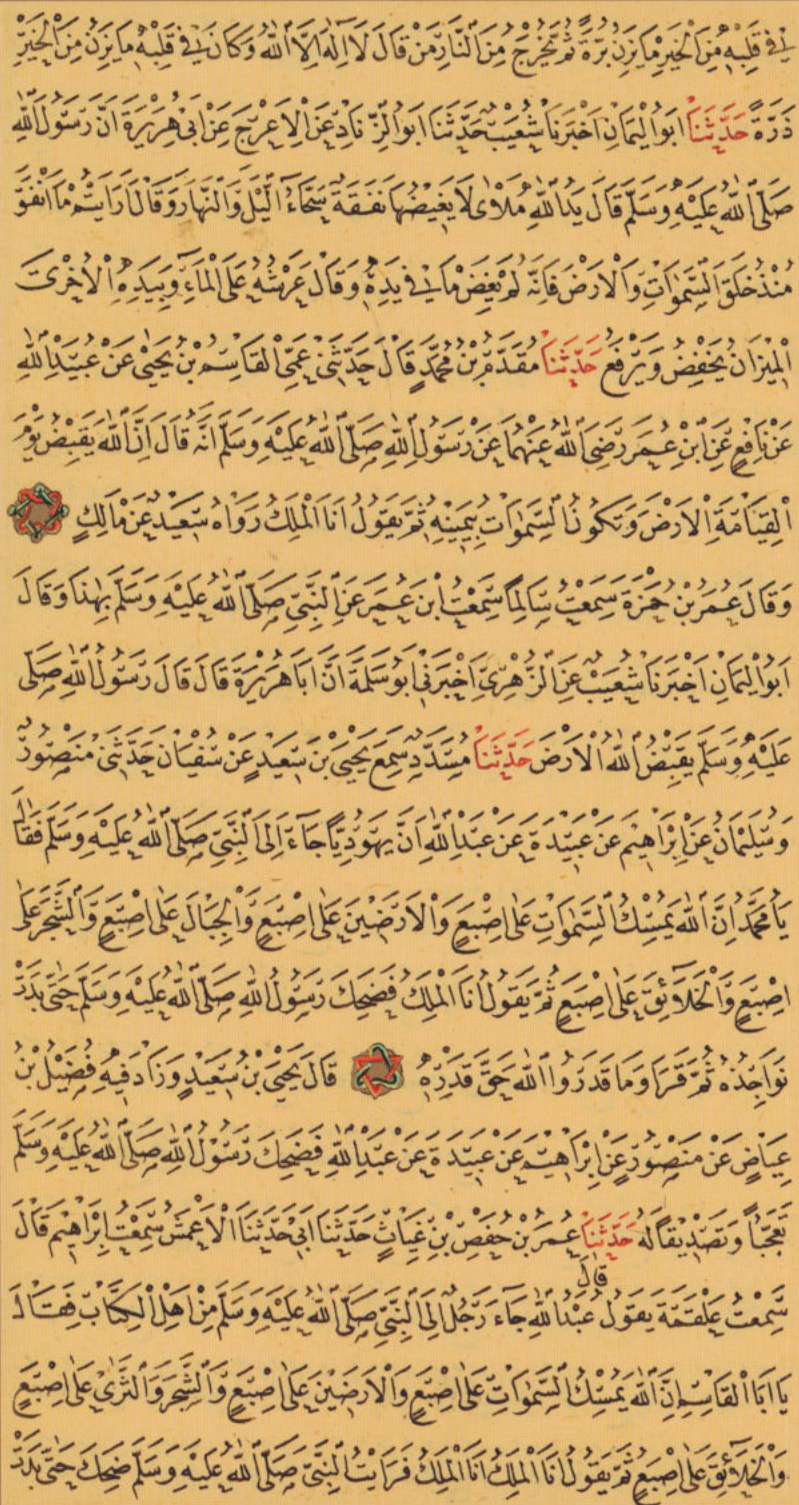 فِي قَلْبِهِ مِنَ الْخَيْرِ مَا يَزِنُ بُرَّةً ثُمَّ يَخْرُجُ مِنَ النَّارِ مَنْ قَالَ لَا اِلٰهَ اِلَّا اللّٰهُ وَكَانَ فِي قَلْبِهِ مَا يَزِنُ مِنَ الْخَيْرِ
ذَرَّةً حَدَّثَنَا اَبُو الْيَمَانِ اَخْبَرَنَا شُعَيْبٌ حَدَّثَنَا اَبُو الزِّنَادِ عَنِ الْاَعْرَجِ عَنْ اَبِي هُرَيْرَةَ اَنَّ رَسُولَ اللّٰهِ
صَلَّى اللّٰهُ عَلَيْهِ وَسَلَّمَ قَالَ يَدُ اللّٰهِ مَلْاٰى لَا يَغِيضُهَا نَفَقَةٌ سَحَّاءُ الَّيْلَ وَالنَّهَارَ وَقَالَ اَرَاَيْتُمْ مَا اَنْفَقَ
مُنْذُ خَلَقَ السَّمٰوَاتِ وَالْاَرْضَ فَاِنَّهُ لَمْ يَغِضْ مَا فِي يَدِهِ وَقَالَ عَرْشُهُ عَلَى الْمَاءِ وَبِيَدِهِ الْاُخْرَى
الْمِيزَانُ يَخْفِضُ وَيَرْفَعُ حَدَّثَنَا مُقَدَّمُ بْنُ مُحَمَّدٍ قَالَ حَدَّثَنِي عَمِّي الْقَاسِمُ بْنُ يَحْيٰى عَنْ عُبَيْدِ اللّٰهِ
عَنْ نَافِعٍ عَنِ ابْنِ عُمَرَ رَضِيَ اللّٰهُ عَنْهُمَا عَنْ رَسُولِ اللّٰهِ صَلَّى اللّٰهُ عَلَيْهِ وَسَلَّمَ اَنَّهُ قَالَ اِنَّ اللّٰهَ يَقْبِضُ يَوْمَ
الْقِيَامَةِ الْاَرْضَ وَتَكُونُ السَّمٰوَاتُ بِيَمِينِهِ ثُمَّ يَقُولُ اَنَا الْمَلِكُ رَوَاهُ سَعِيدٌ عَنْ مَالِكٍ
وَقَالَ عُمَرُ بْنُ حَمْزَةَ سَمِعْتُ سَالِمًا سَمِعْتُ ابْنَ عُمَرَ عَنِ النَّبِيِّ صَلَّى اللّٰهُ عَلَيْهِ وَسَلَّمَ بِهٰذَا وَقَالَ
اَبُو الْيَمَانِ اَخْبَرَنَا شُعَيْبٌ عَنِ الزُّهْرِيِّ اَخْبَرَنِي اَبُو سَلَمَةَ اَنَّ اَبَا هُرَيْرَةَ قَالَ قَالَ رَسُولُ اللّٰهِ صَلَّى
عَلَيْهِ وَسَلَّمَ يَقْبِضُ اللّٰهُ الْاَرْضَ حَدَّثَنَا مُسَدَّدٌ سَمِعَ يَحْيَى بْنَ سَعِيدٍ عَنْ سُفْيَانَ حَدَّثَنِي مَنْصُورٌ
وَسُلَيْمَانُ عَنْ اِبْرَاهِيمَ عَنْ عَبِيدَةَ عَنْ عَبْدِ اللّٰهِ اَنَّ يَهُودِيًّا جَاءَ اِلَى النَّبِيِّ صَلَّى اللّٰهُ عَلَيْهِ وَسَلَّمَ فَقَالَ
يَا مُحَمَّدُ اِنَّ اللّٰهَ يُمْسِكُ السَّمٰوَاتِ عَلٰى اِصْبَعٍ وَالْاَرَضِينَ عَلٰى اِصْبَعٍ وَالْجِبَالَ عَلٰى اِصْبَعٍ وَالشَّجَرَ عَلٰى
اِصْبَعٍ وَالْخَلَائِقَ عَلٰى اِصْبَعٍ ثُمَّ يَقُولُ اَنَا الْمَلِكُ فَضَحِكَ رَسُولُ اللّٰهِ صَلَّى اللّٰهُ عَلَيْهِ وَسَلَّمَ حَتّٰى بَدَتْ
نَوَاجِذُهُ ثُمَّ قَرَاَ وَمَا قَدَرُوا اللّٰهَ حَقَّ قَدْرِهِ قَالَ يَحْيَى بْنُ سَعِيدٍ وَزَادَ فِيهِ فُضَيْلُ بْنُ
عِيَاضٍ عَنْ مَنْصُورٍ عَنْ اِبْرَاهِيمَ عَنْ عَبِيدَةَ عَنْ عَبْدِ اللّٰهِ فَضَحِكَ رَسُولُ اللّٰهِ صَلَّى اللّٰهُ عَلَيْهِ وَسَلَّمَ
تَعَجُّبًا وَتَصْدِيقًا لَهُ حَدَّثَنَا عُمَرُ بْنُ حَفْصِ بْنِ غِيَاثٍ حَدَّثَنَا اَبِي حَدَّثَنَا الْاَعْمَشُ سَمِعْتُ اِبْرَاهِيمَ قَالَ
سَمِعْتُ عَلْقَمَةَ يَقُولُ قَالَ عَبْدُ اللّٰهِ جَاءَ رَجُلٌ اِلَى النَّبِيِّ صَلَّى اللّٰهُ عَلَيْهِ وَسَلَّمَ مِنْ اَهْلِ الْكِتَابِ فَقَالَ
يَا اَبَا الْقَاسِمِ اِنَّ اللّٰهَ يُمْسِكُ السَّمٰوَاتِ عَلٰى اِصْبَعٍ وَالْاَرَضِينَ عَلٰى اِصْبَعٍ وَالشَّجَرَ وَالثَّرٰى عَلٰى اِصْبَعٍ
وَالْخَلَائِقَ عَلٰى اِصْبَعٍ ثُمَّ يَقُولُ اَنَا الْمَلِكُ اَنَا الْمَلِكُ فَرَاَيْتُ النَّبِيَّ صَلَّى اللّٰهُ عَلَيْهِ وَسَلَّمَ ضَحِكَ حَتّٰى بَدَتْ